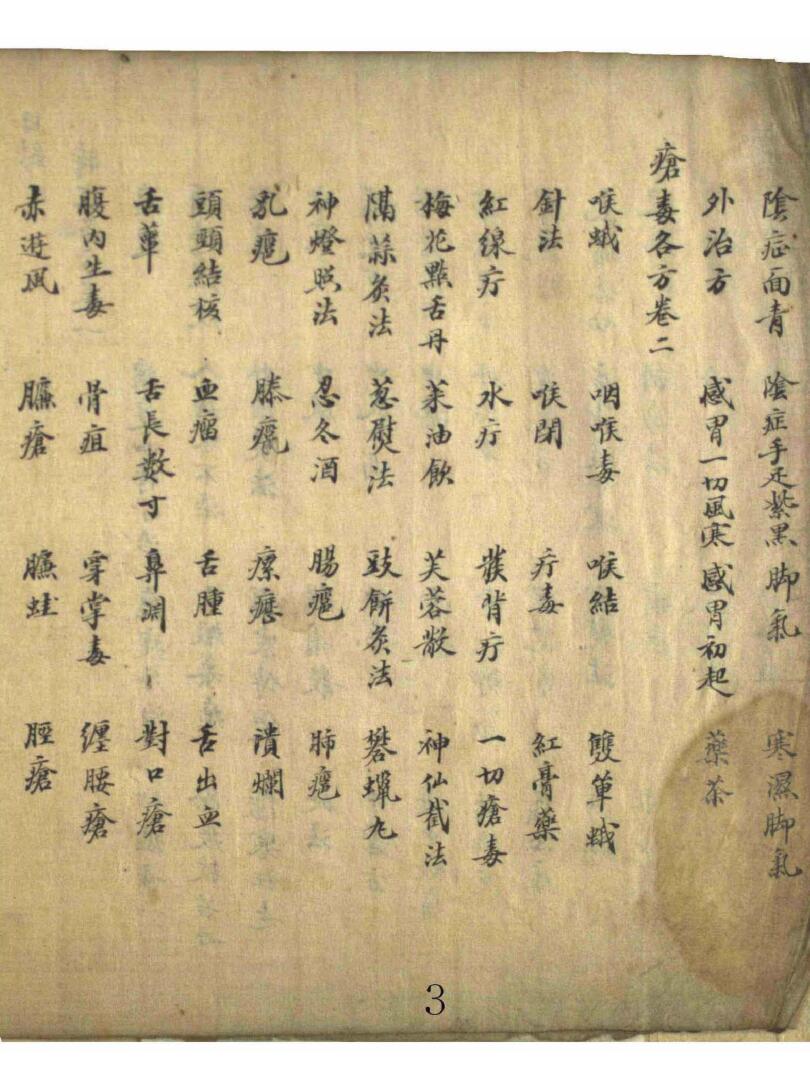 陰症面青 陰症手足紫黑 脚氣 寒濕脚氣
外治方 感胃一切風寒 感胃初起 藥茶
瘡毒各方卷二
喉蛾 咽喉毒 喉結 雙单蛾
針法 喉閉 疔毒 紅膏藥
紅線疔 水疔 發背疔 一切瘡毒
梅花點舌丹 菜油飲 芙蓉散 神仙截法
隔蒜灸法 葱熨法 豉餅灸法 礬蠟丸
神燈照法 忍冬酒 腸癰 肺癰
乳癰 膝癰 瘰癧 潰爛
頭頸結核 血瘤 舌腫 舌出血
舌蕈 舌長數寸 鼻淵 對口瘡
腹內生毒 骨疽 穿掌毒 纏腰瘡
赤遊風 臁瘡 臁蛀 脛瘡
3